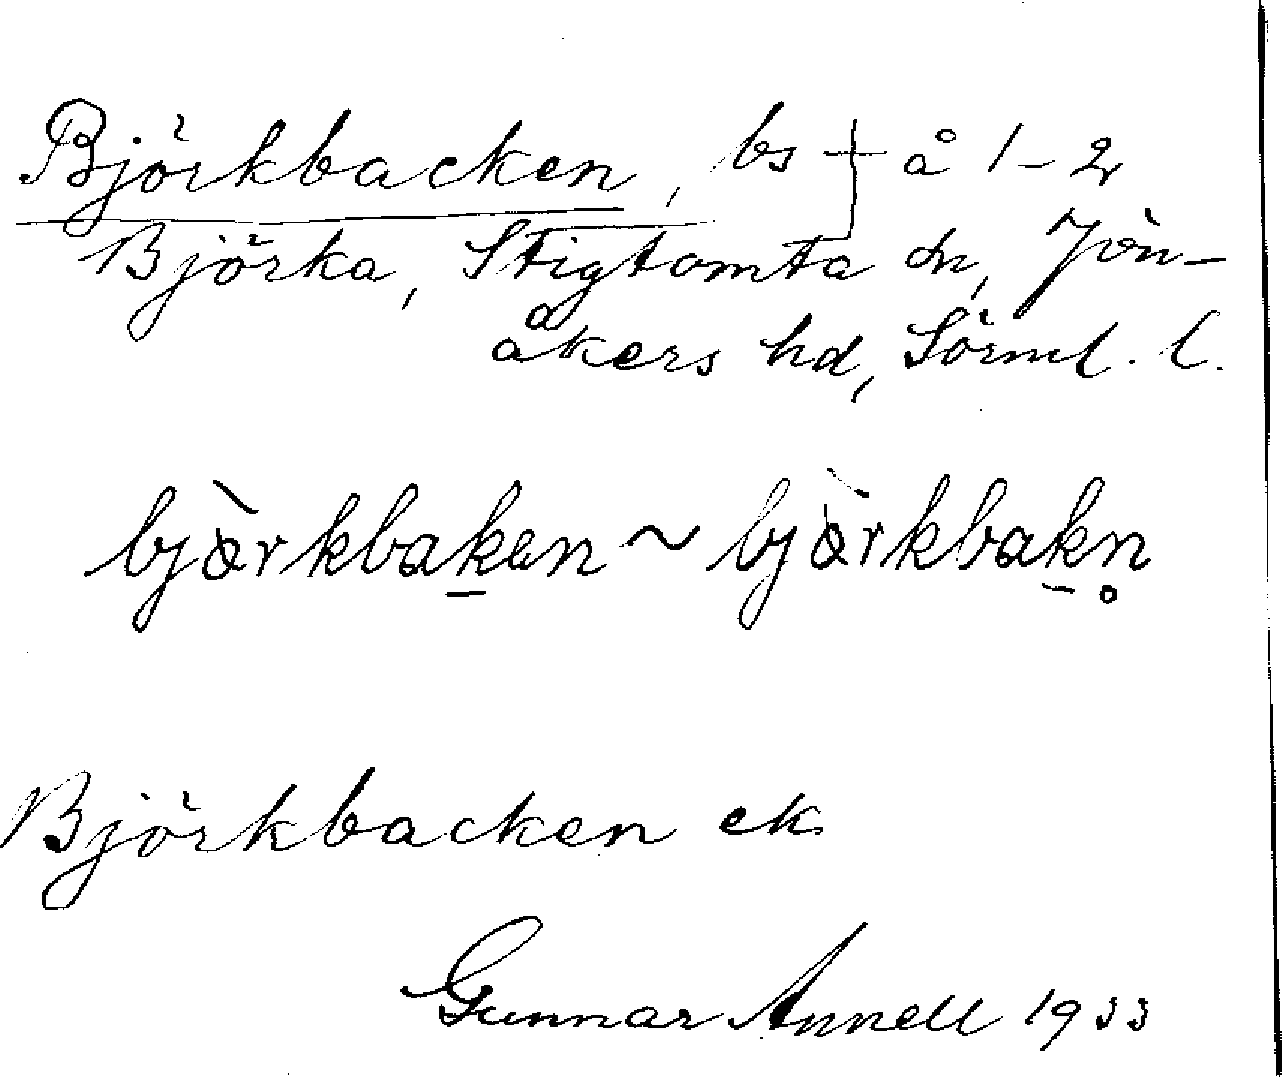 Björkbacken, bs † å 1-2
Björka, Stigtomta sn, Jön-
åkers hd, Sörml. l.
bjørkbaken ~ bjørkbakn̥
Björkbacken ek
Gunnar Annell 1933